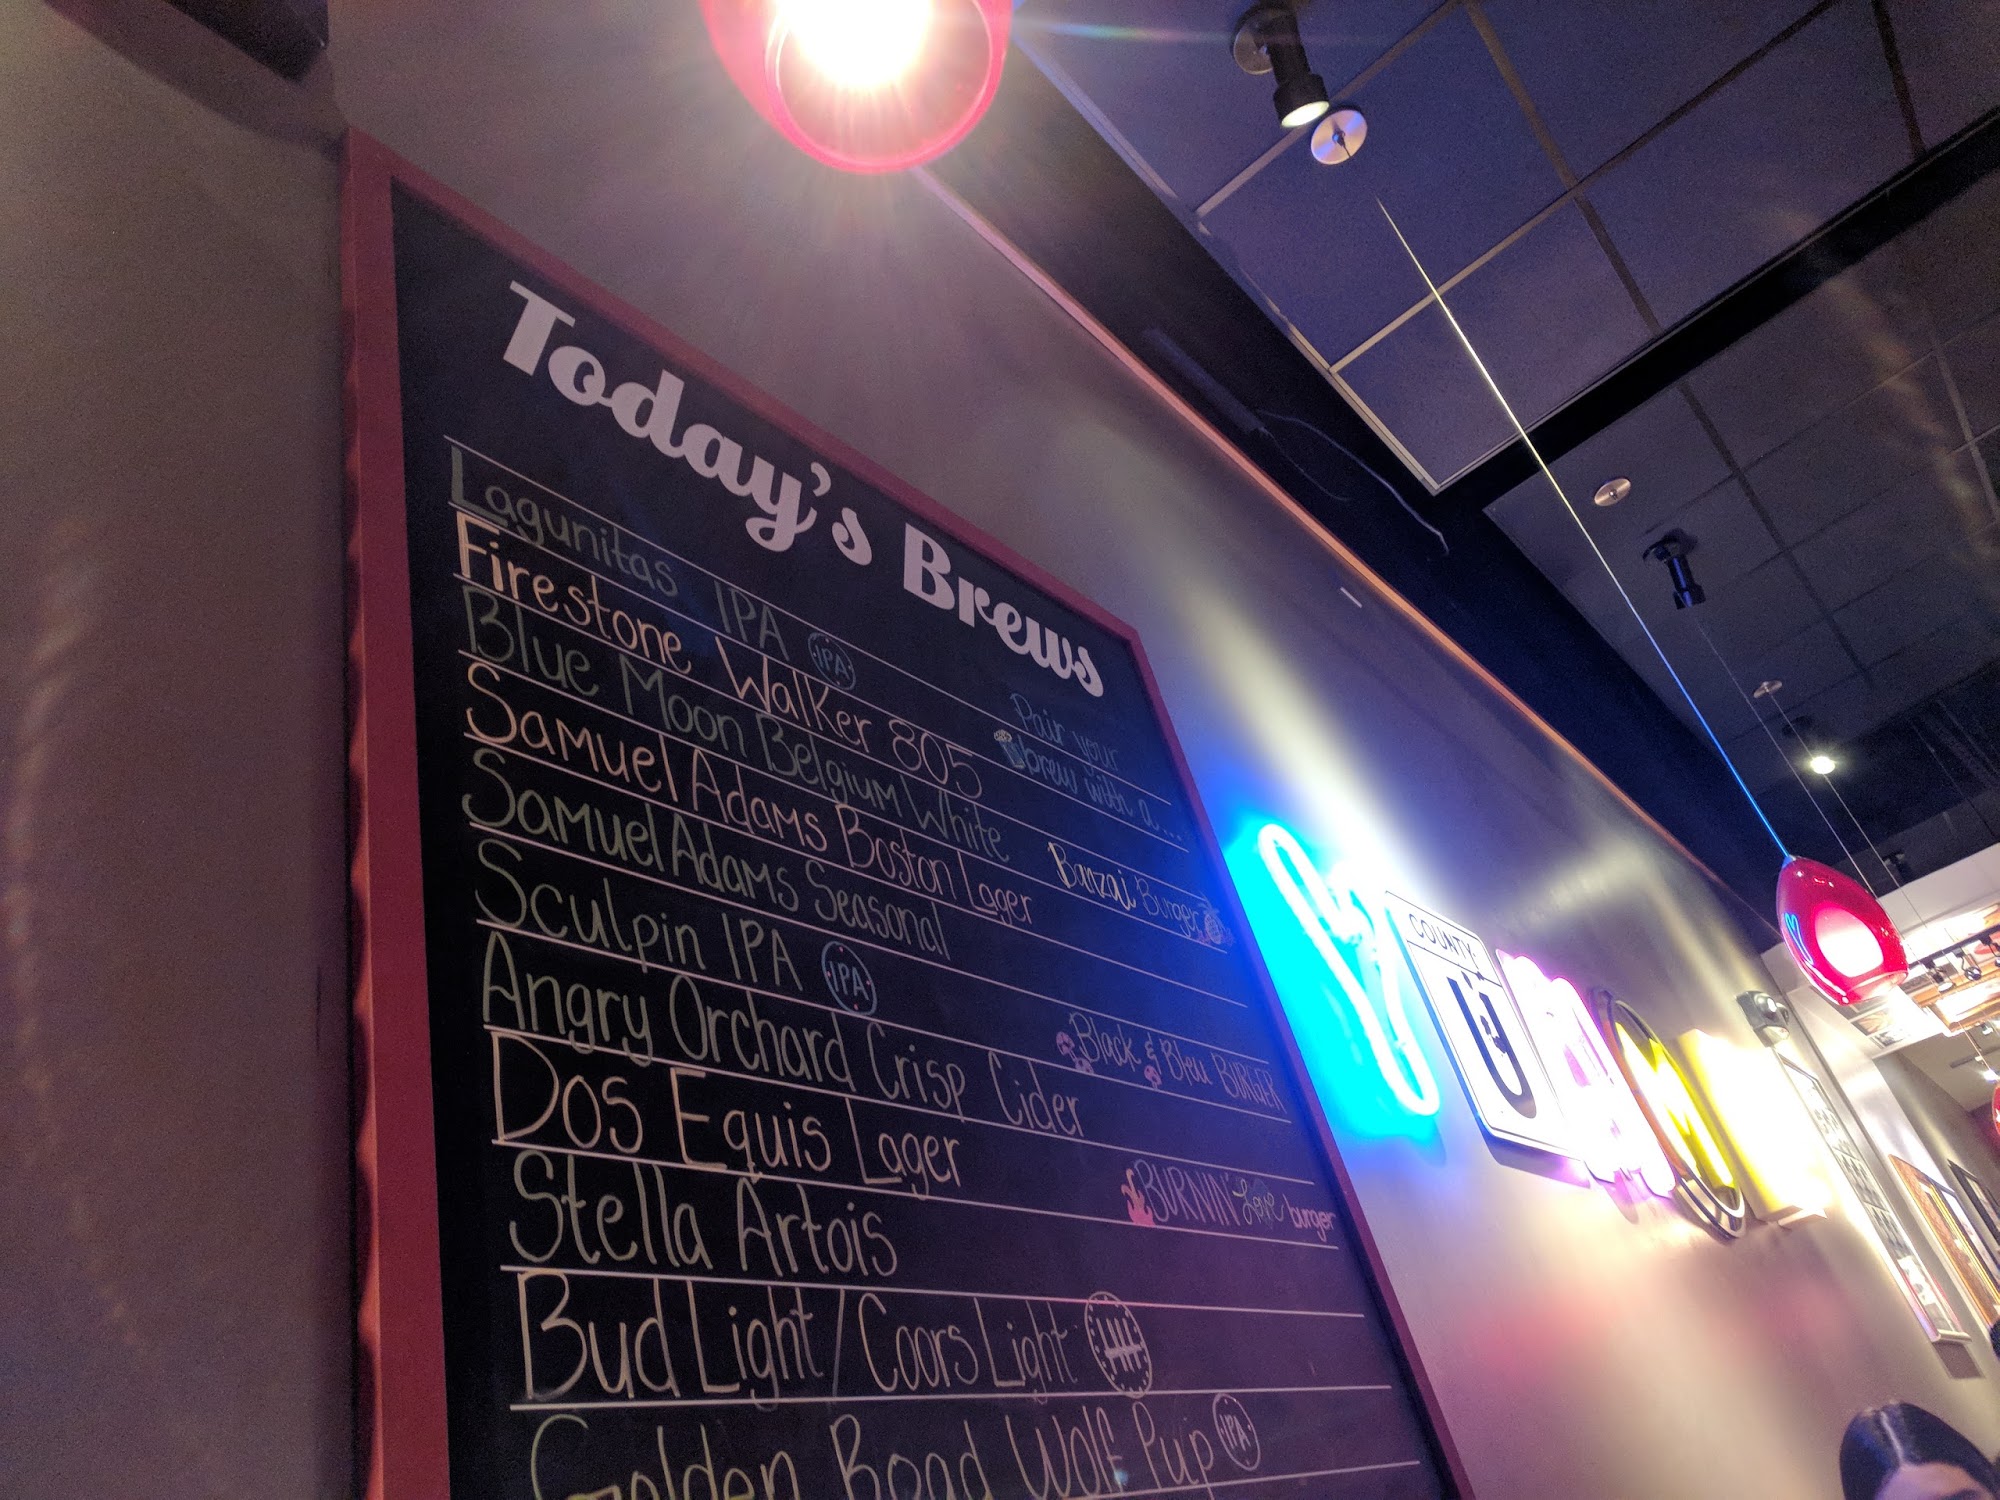 Today's Brews
Lagunitas IPA IPA
Firestone Walker 805
Blue Moon Belgium White
Samuel Adams Boston Lager
Samuel Adams Seasonal
Sculpin IPA IPA
Angry Orchard Crisp Cider
Dos Equis Lager
Stella Artois
Bud Light/Coors Light
Golden Road Wolf Pup IPA
Pair your
brew with a...
Banzai Burger
Black & Bleu BURGER
BURNIN' Love burger
COUNTY
U